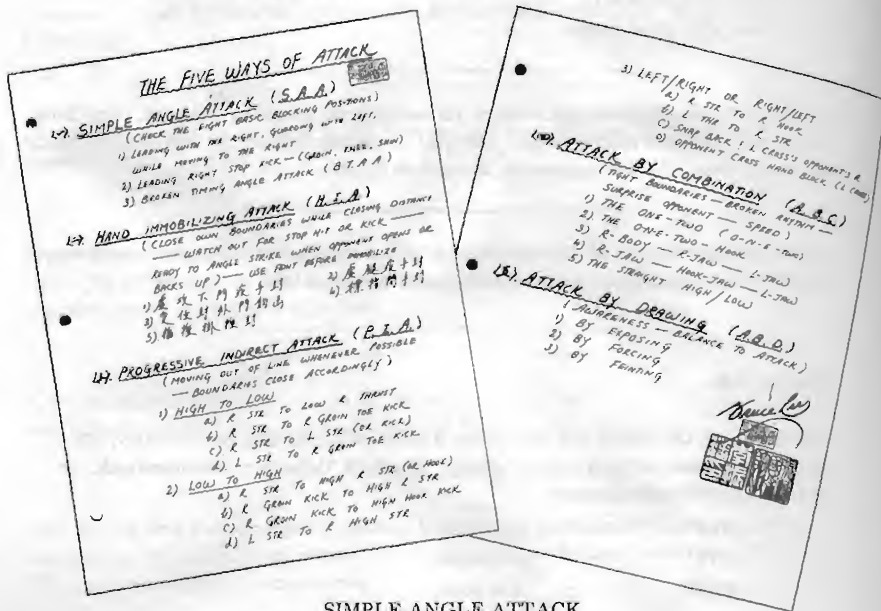 THE FIVE WAYS OF ATTACK
(一). SIMPLE ANGLE ATTACK (S.A.A.)
(CHECK THE EIGHT BASIC BLOCKING POSITIONS)
1) LEADING WITH THE RIGHT, GUARDING WITH LEFT,
WHILE MOVING TO THE RIGHT
2) LEADING RIGHT STOP KICK — (GROIN, KNEE, SHIN)
3) BROKEN TIMING ANGLE ATTACK (B.T.A.A)
HAND IMMOBILIZING ATTACK (H.I.A)
(CLOSE OWN BOUNDARIES WHILE CLOSING DISTANCE
— WATCH OUT FOR STOP HIT OR KICK —
READY TO ANGLE STRIKE WHEN OPPONENT OPENS OR
BACKS UP) — USE FEINT BEFORE IMMOBILIZE
1)
2)
3)
4)
5)
PROGRESSIVE INDIRECT ATTACK (P.I.A.)
(MOVING OUT OF LINE WHENEVER POSSIBLE
— BOUNDARIES CLOSE ACCORDINGLY)
1) HIGH TO LOW
a) R STR TO LOW R THRUST
b) R STR TO R GROIN TOE KICK
c) R STR TO L STR (OR KICK)
d) L STR TO R GROIN TOE KICK
2) LOW TO HIGH
a) R STR TO HIGH R STR (OR HOOK)
b) R GROIN KICK TO HIGH R STR
c) R GROIN KICK TO HIGH HOOK KICK
d) L STR TO R HIGH STR
3) LEFT/RIGHT OR RIGHT/LEFT
a) R STR TO R HOOK
b) L THR TO R STR
c) SNAP BACK: L CROSS'S OPPONENT'S R
d) OPPONENT CROSS HAND BLOCK
(四). ATTACK BY COMBINATION (A.B.C.)
(TIGHT BOUNDARIES — BROKEN RHYTHM —
SURPRISE OPPONENT — SPEED)
1) THE ONE-TWO (O-N-E-TWO)
2) THE ONE-TWO-HOOK
3) R-BODY — R-JAW — L-JAW
4) R-JAW — HOOK-JAW — L-JAW
5) THE STRAIGHT HIGH/LOW
(五). ATTACK BY DRAWING (A.B.D.)
(AWARENESS — BALANCE TO ATTACK)
1) BY EXPOSING
2) BY FORCING
3) BY FEINTING
Bruce Lee
SIMPLE ANGLE ATTACK